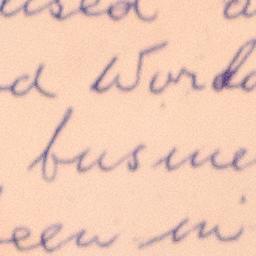 used
d World
busine
een in